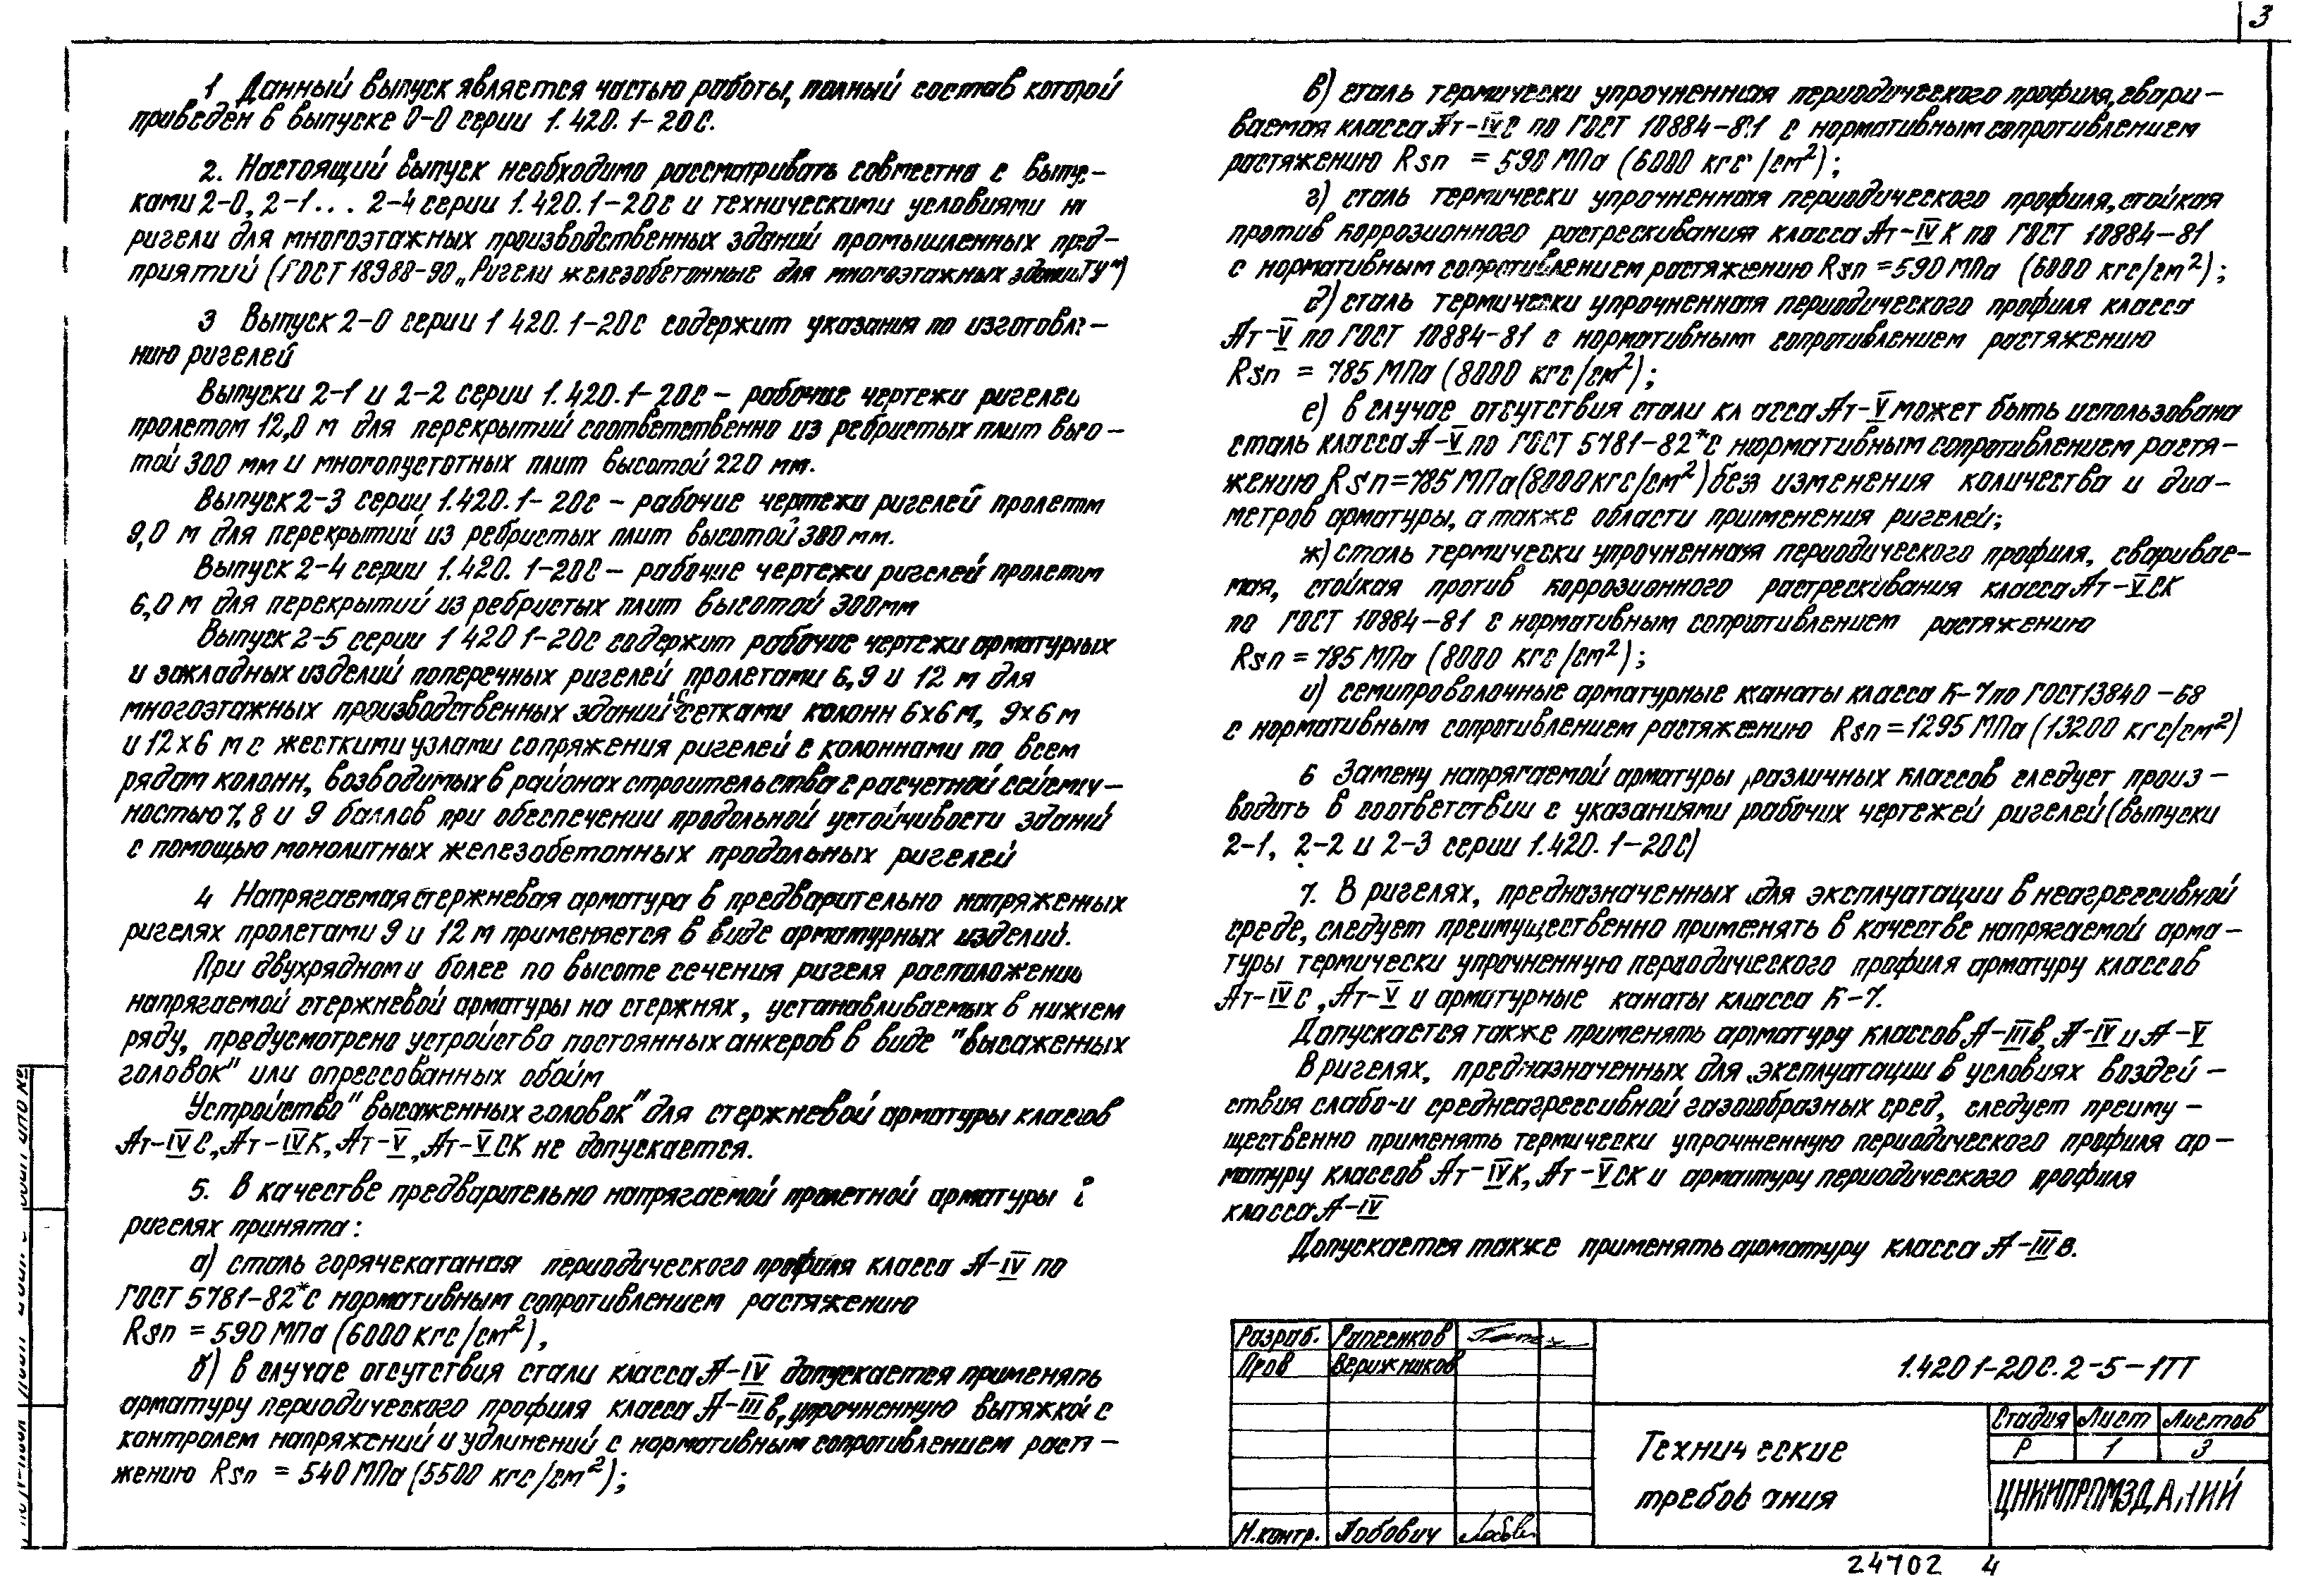 3
1 Данный выпуск является частью работы, полный состав которой
приведен в выпуске 0-0 серии 1.420.1-20с.
2. Настоящий выпуск необходимо рассматривать совместно с выпус-
ками 2-0, 2-1... 2-4 серии 1.420.1-20с и техническими условиями на
ригели для многоэтажных производственных зданий промышленных пред-
приятий (ГОСТ 18988-90 „Ригели железобетонные для многоэтажных зданий ТУ")
3 Выпуск 2-0 серии 1 420.1-20с содержит указания по изготовле-
нию ригелей
Выпуски 2-1 и 2-2 серии 1.420.1-20с - рабочие чертежи ригелей
пролетом 12,0 м для перекрытий соответственно из ребристых плит высо-
той 300 мм и многопустотных плит высотой 220 мм.
Выпуск 2-3 серии 1.420.1-20с - рабочие чертежи ригелей пролетом
9,0 м для перекрытий из ребристых плит высотой 300 мм.
Выпуск 2-4 серии 1.420.1-20с - рабочие чертежи ригелей пролетом
6,0 м для перекрытий из ребристых плит высотой 300мм
Выпуск 2-5 серии 1 420 1-20с содержит рабочие чертежи арматурных
и закладных изделий поперечных ригелей пролетами 6,9 и 12 м для
многоэтажных производственных зданий с сетками колонн 6х6 м, 9х6 м
и 12х6 м с жесткими узлами сопряжения ригелей с колоннами по всем
рядам колонн, возводимых в районах строительства с расчетной сейсмич-
ностью 7, 8 и 9 баллов при обеспечении продольной устойчивости зданий
с помощью монолитных железобетонных продольных ригелей
4 Напрягаемая стержневая арматура в предварительно напряженных
ригелях пролетами 9 и 12 м применяется в виде арматурных изделий.
При двухрядном и более по высоте сечения ригеля расположении
напрягаемой стержневой арматуры на стержнях, устанавливаемых в нижнем
ряду, предусмотрено устройство постоянных анкеров в виде "высаженных
головок" или опрессованных обойм
Устройство "высаженных головок" для стержневой арматуры классов
Ат-IVС, Ат-IVК, Ат-V, Ат-VСК не допускается.
5. В качестве предварительно напрягаемой пролетной арматуры в
ригелях принята:
а) сталь горячекатаная периодического профиля класса А-IV по
ГОСТ 5781-82* с нормативным сопротивлением растяжению
Rsn = 590 МПа (6000 кгс/см²),
б) в случае отсутствия стали класса А-IV допускается применять
арматуру периодического профиля класса А-IIIв, упрочненную вытяжкой с
контролем напряжений и удлинений с нормативным сопротивлением растя-
жению Rsn = 540 МПа (5500 кгс/см²);
в) сталь термически упрочненная периодического профиля, свари-
ваемая класса Ат-IVС по ГОСТ 10884-81 с нормативным сопротивлением
растяжению Rsn = 590 МПа (6000 кгс/см²);
г) сталь термически упрочненная периодического профиля, стойкая
против коррозионного растрескивания класса Ат-IVК по ГОСТ 10884-81
с нормативным сопротивлением растяжению Rsn = 590 МПа (6000 кгс/см²);
д) сталь термически упрочненная периодического профиля класса
Ат-V по ГОСТ 10884-81 с нормативным сопротивлением растяжению
Rsn = 785 МПа (8000 кгс/см²);
е) в случае отсутствия стали класса Ат-V может быть использована
сталь класса А-V по ГОСТ 5781-82* с нормативным сопротивлением растя-
жению Rsn = 785 МПа (8000 кгс/см²) без изменения количества и диа-
метров арматуры, а также области применения ригелей;
ж) сталь термически упрочненная периодического профиля, сваривае-
мая, стойкая против коррозионного растрескивания класса Ат-VСК
по ГОСТ 10884-81 с нормативным сопротивлением растяжению
Rsn = 785 МПа (8000 кгс/см²);
и) семипроволочные арматурные канаты класса К-7 по ГОСТ 13840-68
с нормативным сопротивлением растяжению Rsn = 1295 МПа (13200 кгс/см²)
6 Замену напрягаемой арматуры различных классов следует произ-
водить в соответствии с указаниями рабочих чертежей ригелей (выпуски
2-1, 2-2 и 2-3 серии 1.420.1-20с)
7. В ригелях, предназначенных для эксплуатации в неагрессивной
среде, следует преимущественно применять в качестве напрягаемой арма-
туры термически упрочненную периодического профиля арматуру классов
Ат-IVС, Ат-V и арматурные канаты класса К-7.
Допускается также применять арматуру классов А-IIIв, А-IV и А-V
В ригелях, предназначенных для эксплуатации в условиях воздей-
ствия слабо- и среднеагрессивной газообразных сред, следует преиму-
щественно применять термически упрочненную периодического профиля ар-
матуру классов Ат-IVК, Ат-VСК и арматуру периодического профиля
класса А-IV
Допускается также применять арматуру класса А-IIIв.
Разраб. Рапеенков
Пров Верижников
Н.контр. Лобович
1.420 1-20с.2-5-1ТТ
Технические
требования
Стадия Лист Листов
Р 1 3
ЦНИИПРОМЗДАНИЙ
24702 4